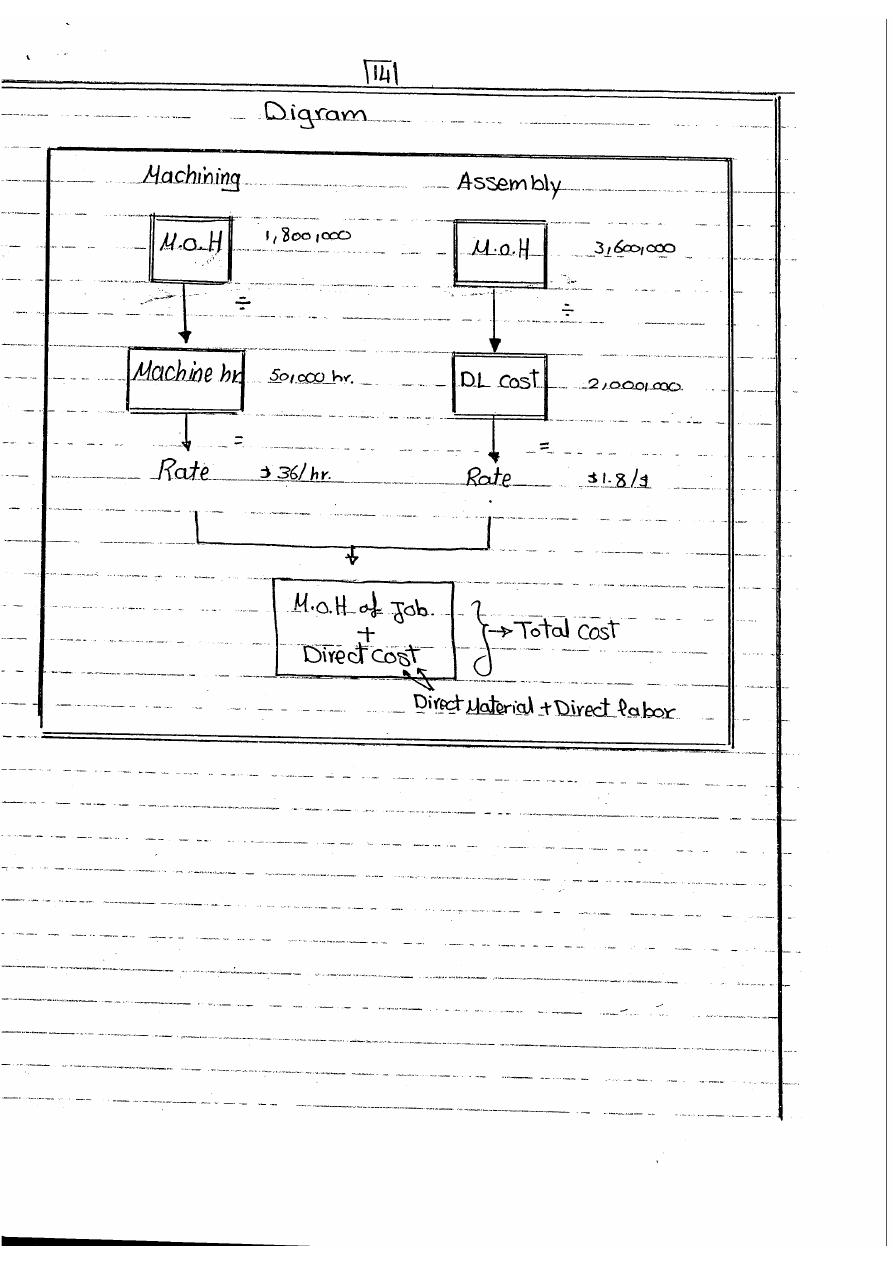 14
Digram
Machining Assembly
M.O.H 1,800,000 M.O.H 3,600,000
÷ ÷
Machine hr 50,000 hr. DL cost 2,000,000
= =
Rate $36/hr. Rate $1.8/$
M.O.H of Job.
+
Direct Cost
→ Total cost
Direct Material + Direct labor